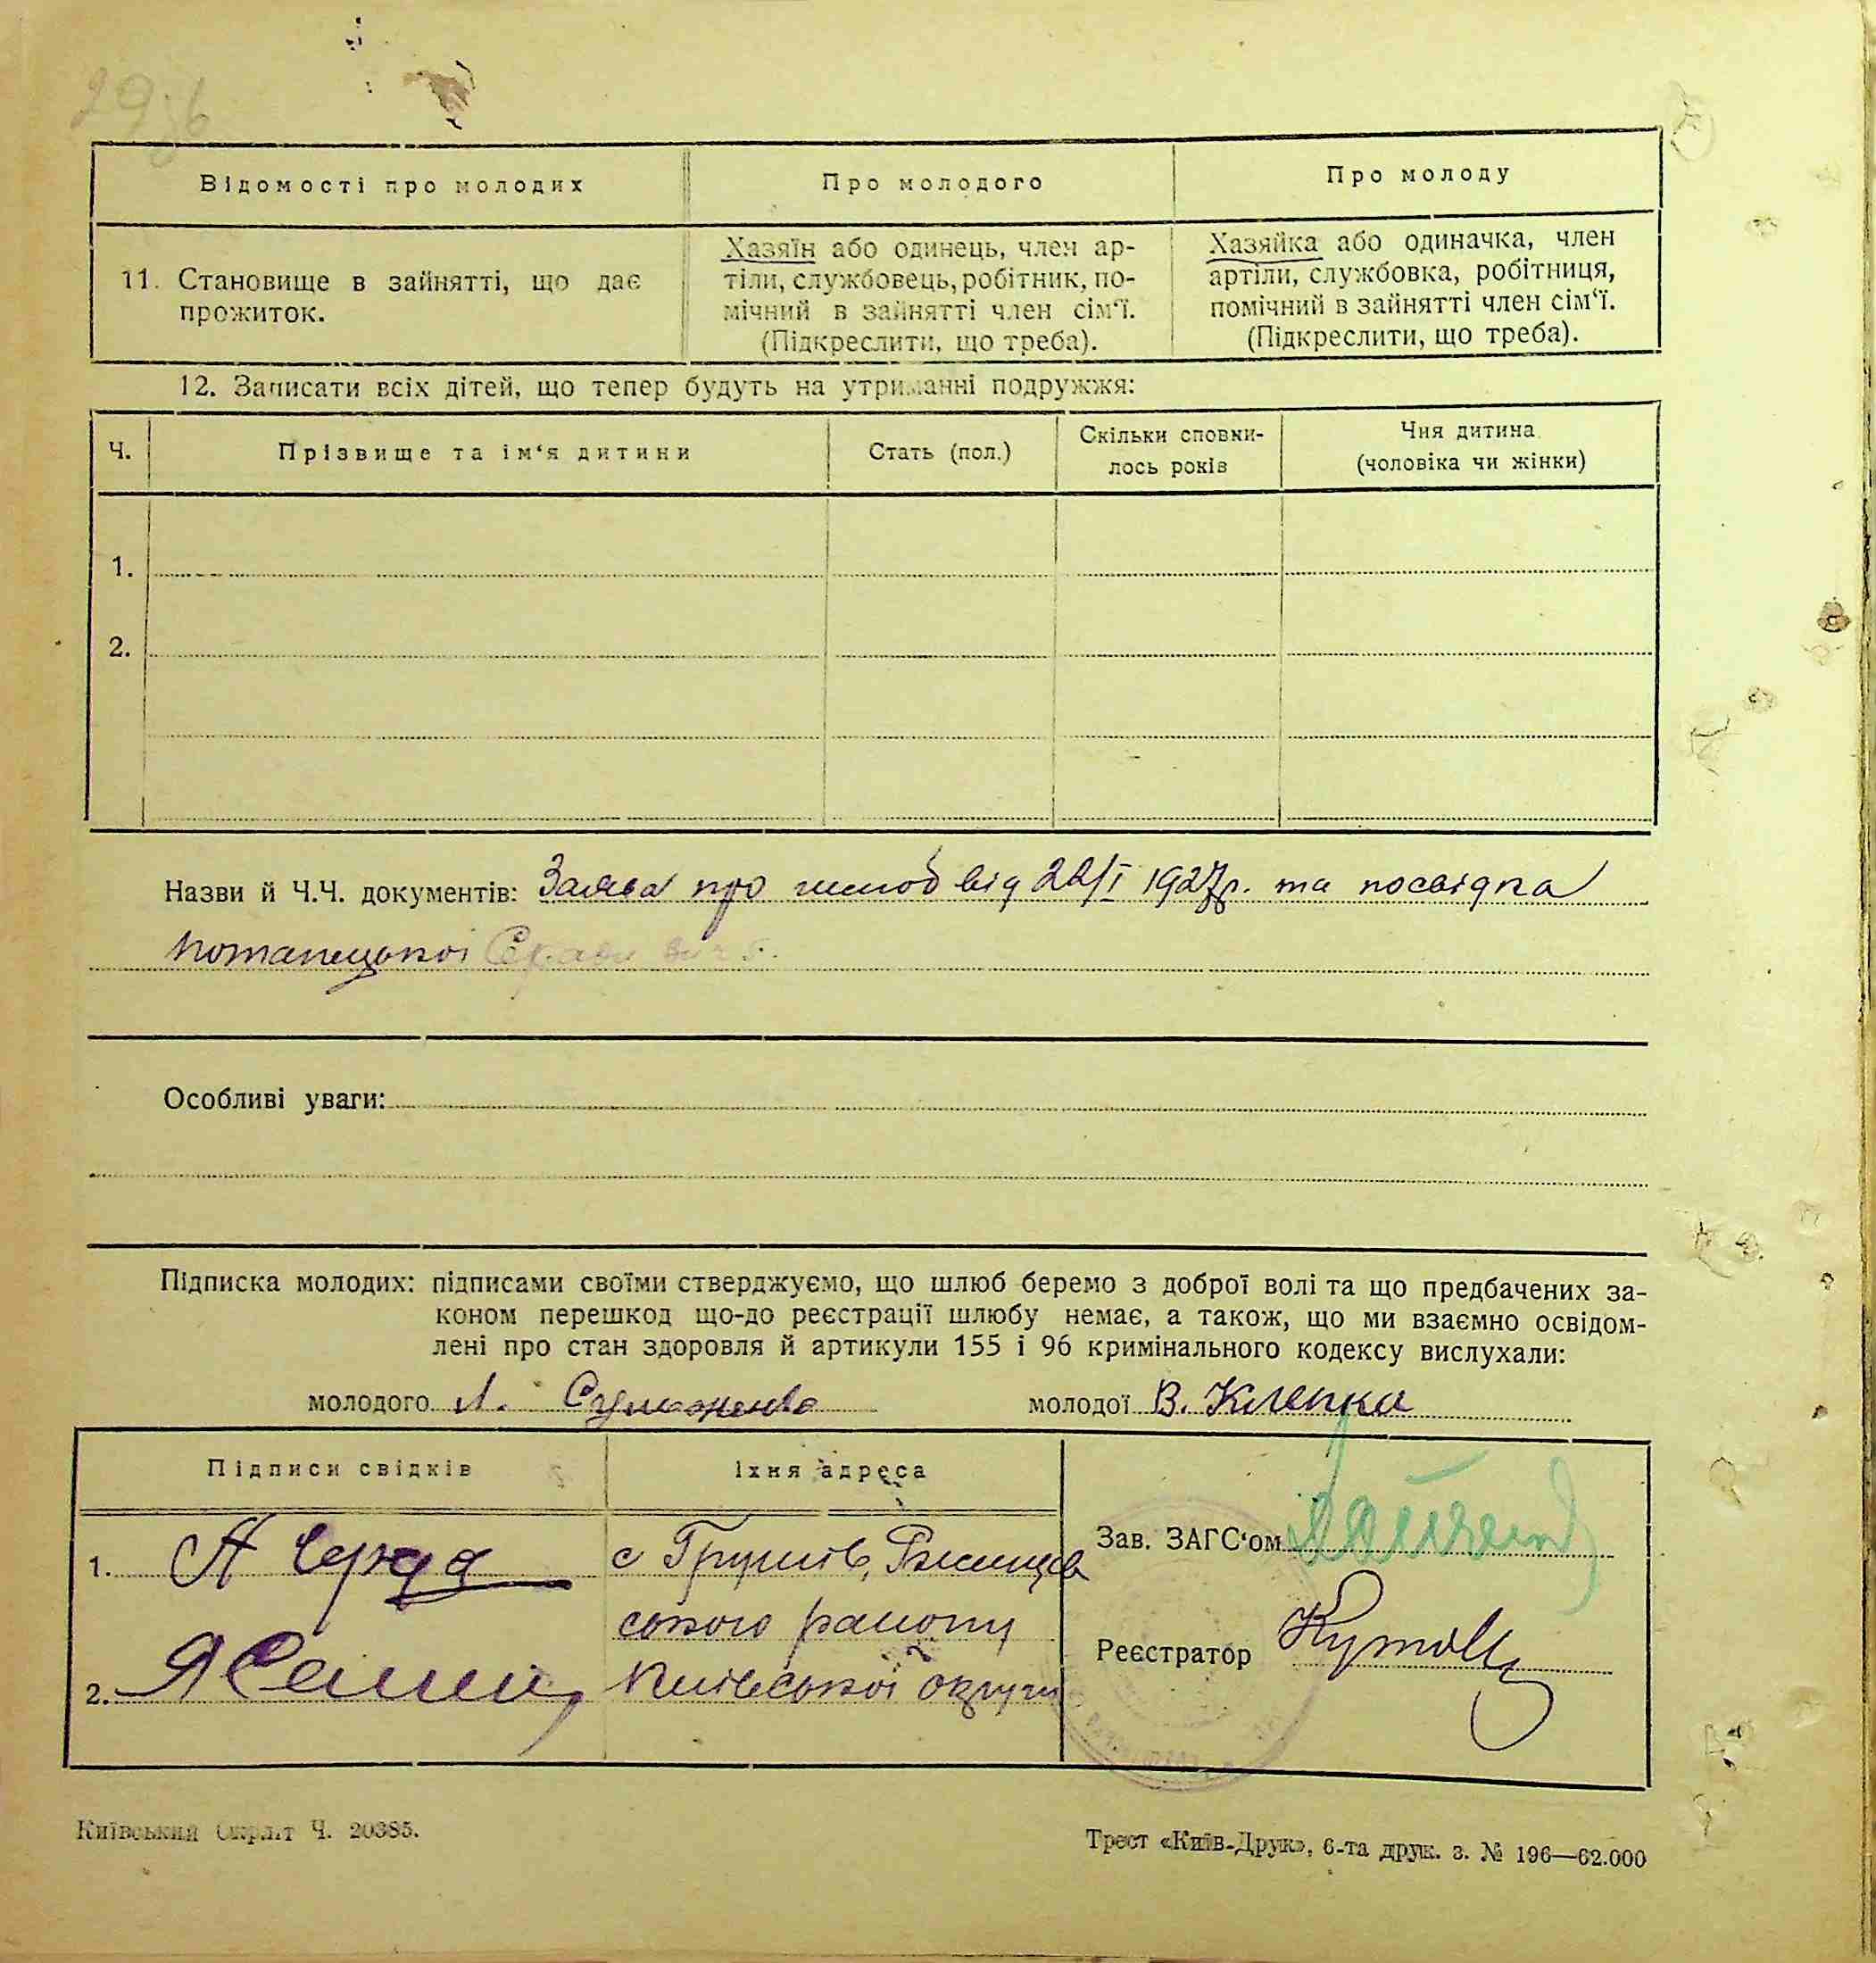 29зв
Відомості про молодих
Про молодого
Про молоду
11. Становище в зайнятті, що дає
прожиток.
Хазяїн або одинець, член ар-
тіли, службовець, робітник, по-
мічний в зайнятті член сім‘ї.
(Підкреслити, що треба).
Хазяйка або одиначка, член
артіли, службовка, робітниця,
помічний в зайнятті член сім‘ї.
(Підкреслити, що треба).
12. Записати всіх дітей, що тепер будуть на утриманні подружжя:
Ч.
Прізвище та ім‘я дитини
Стать (пол.)
Скільки сповни-
лось років
Чия дитина
(чоловіка чи жінки)
1.
2.
Назви й Ч.Ч. документів: Заява про шлюб від 22/I 1927р. та посвідка
Потапецької
Особливі уваги:
Підписка молодих: підписами своїми стверджуємо, що шлюб беремо з доброї волі та що предбачених за-
коном перешкод що-до реєстрації шлюбу немає, а також, що ми взаємно освідом-
лені про стан здоровля й артикули 155 і 96 кримінального кодексу вислухали:
молодого Л.
молодої В. Клепка
Підписи свідків
Їхня адреса
1. А Середа
с Грушів, Ржищів
ського району
2.
Київської округи
Зав. ЗАГС‘ом
Реєстратор
Київський Окрліт Ч. 20385.
Трест «Київ-Друк», 6-та друк. з. № 196—62.000